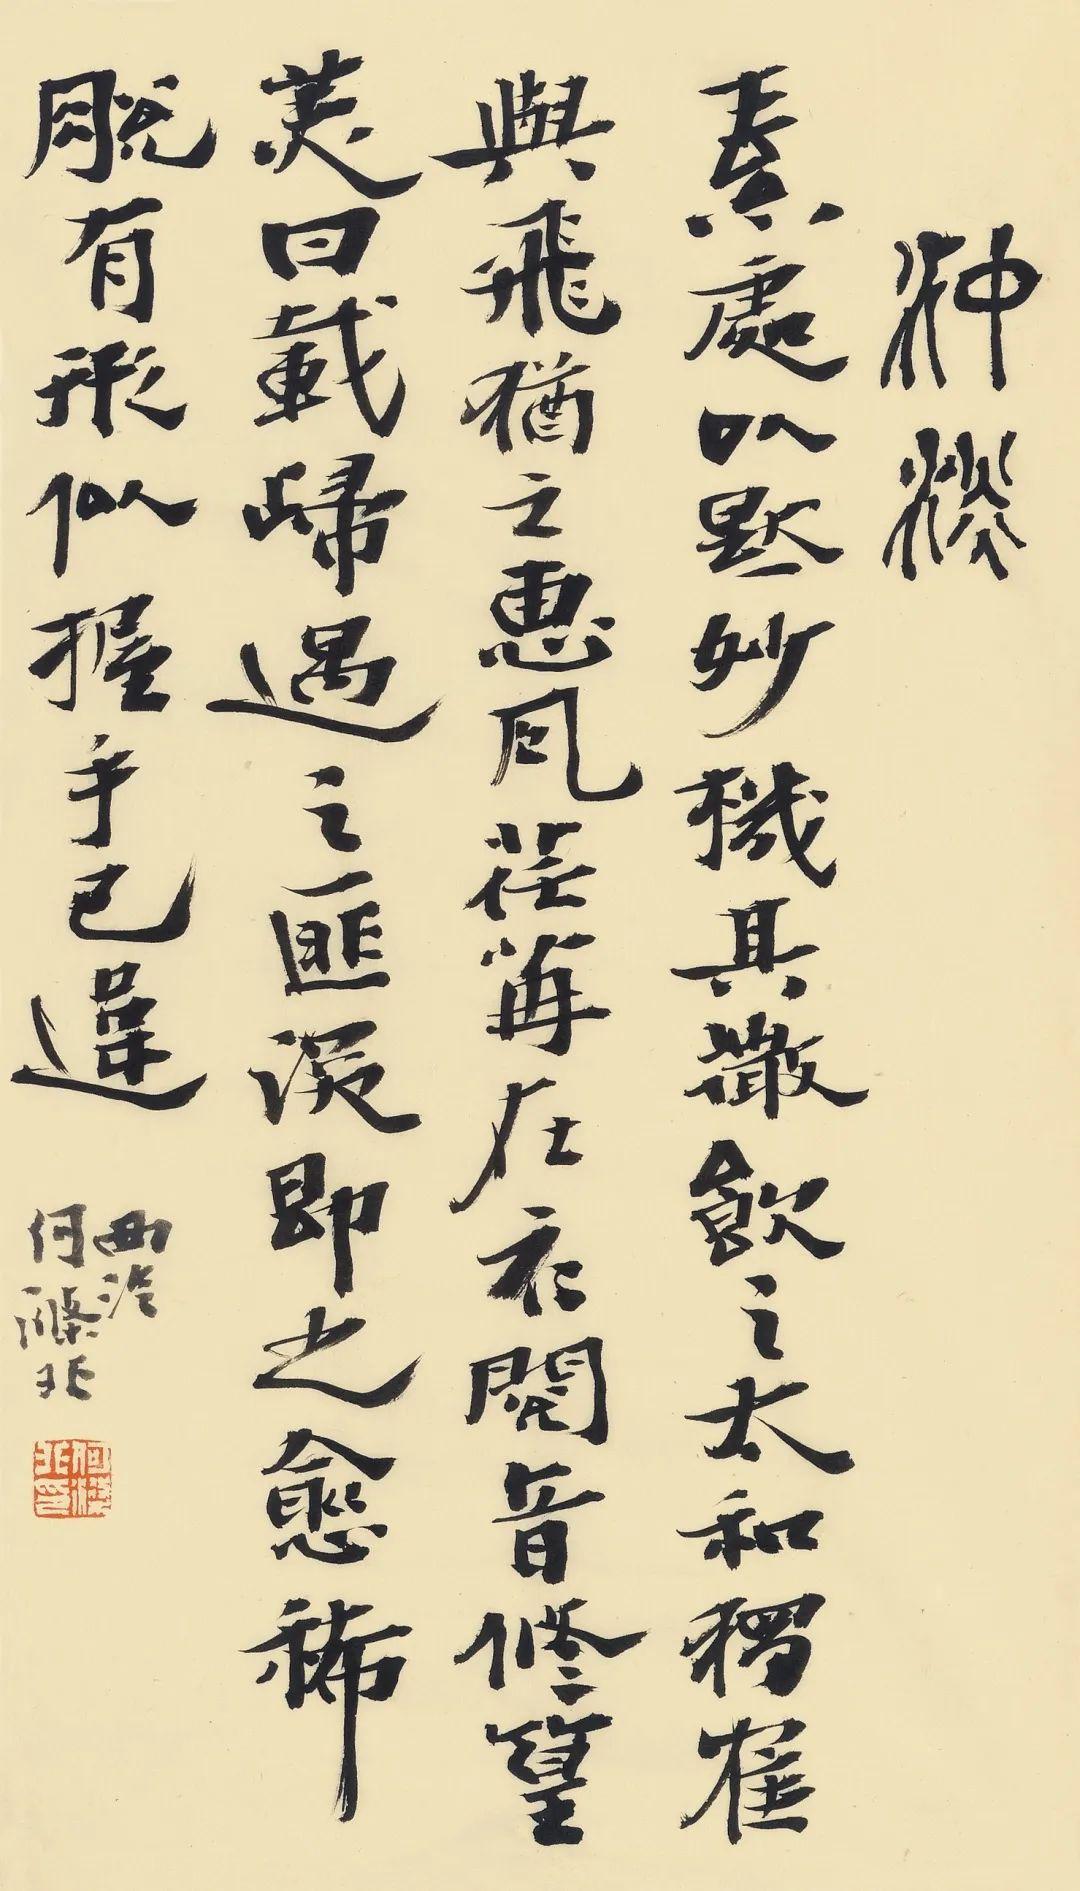 沖淡
素處以默妙機其微飲之太和獨隺
與飛猶之惠風荏苒在衣閱音修篁
美曰載歸遇之匪深即之愈稀
脫有形似握手已違
西泠
何滌非
何滌非印